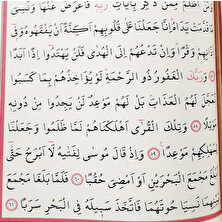 وَمَنْ أَظْلَمُ مِمَّنْ ذُكِّرَ بِاٰيَاتِ رَبِّهٖ فَاَعْرَضَ عَنْهَا وَنَسِيَ
مَا قَدَّمَتْ يَدَاهُ اِنَّا جَعَلْنَا عَلٰى قُلُوبِهِمْ اَكِنَّةً اَنْ يَفْقَهُوهُ وَفٖٓى
اٰذَانِهِمْ وَقْرًا وَاِنْ تَدْعُهُمْ اِلَى الْهُدٰى فَلَنْ يَهْتَدُٓوا اِذًا اَبَدًا
﴿٥٧﴾ وَرَبُّكَ الْغَفُورُ ذُو الرَّحْمَةِ لَوْ يُؤَاخِذُهُمْ بِمَا كَسَبُوا
لَعَجَّلَ لَهُمُ الْعَذَابَ بَلْ لَهُمْ مَوْعِدٌ لَنْ يَجِدُوا مِنْ دُونِهٖ
مَوْئِلًا ﴿٥٨﴾ وَتِلْكَ الْقُرٰٓى اَهْلَكْنَاهُمْ لَمَّا ظَلَمُوا وَجَعَلْنَا
لِمَهْلِكِهِمْ مَوْعِدًا ﴿٥٩﴾ وَاِذْ قَالَ مُوسٰى لِفَتٰيهُ لَٓا اَبْرَحُ حَتّٰٓى
اَبْلُغَ مَجْمَعَ الْبَحْرَيْنِ اَوْ اَمْضِيَ حُقُبًا ﴿٦٠﴾ فَلَمَّا بَلَغَا مَجْمَعَ
بَيْنِهِمَا نَسِيَا حُوتَهُمَا فَاتَّخَذَ سَبٖيلَهُ فِى الْبَحْرِ سَرَبًا ﴿٦١﴾